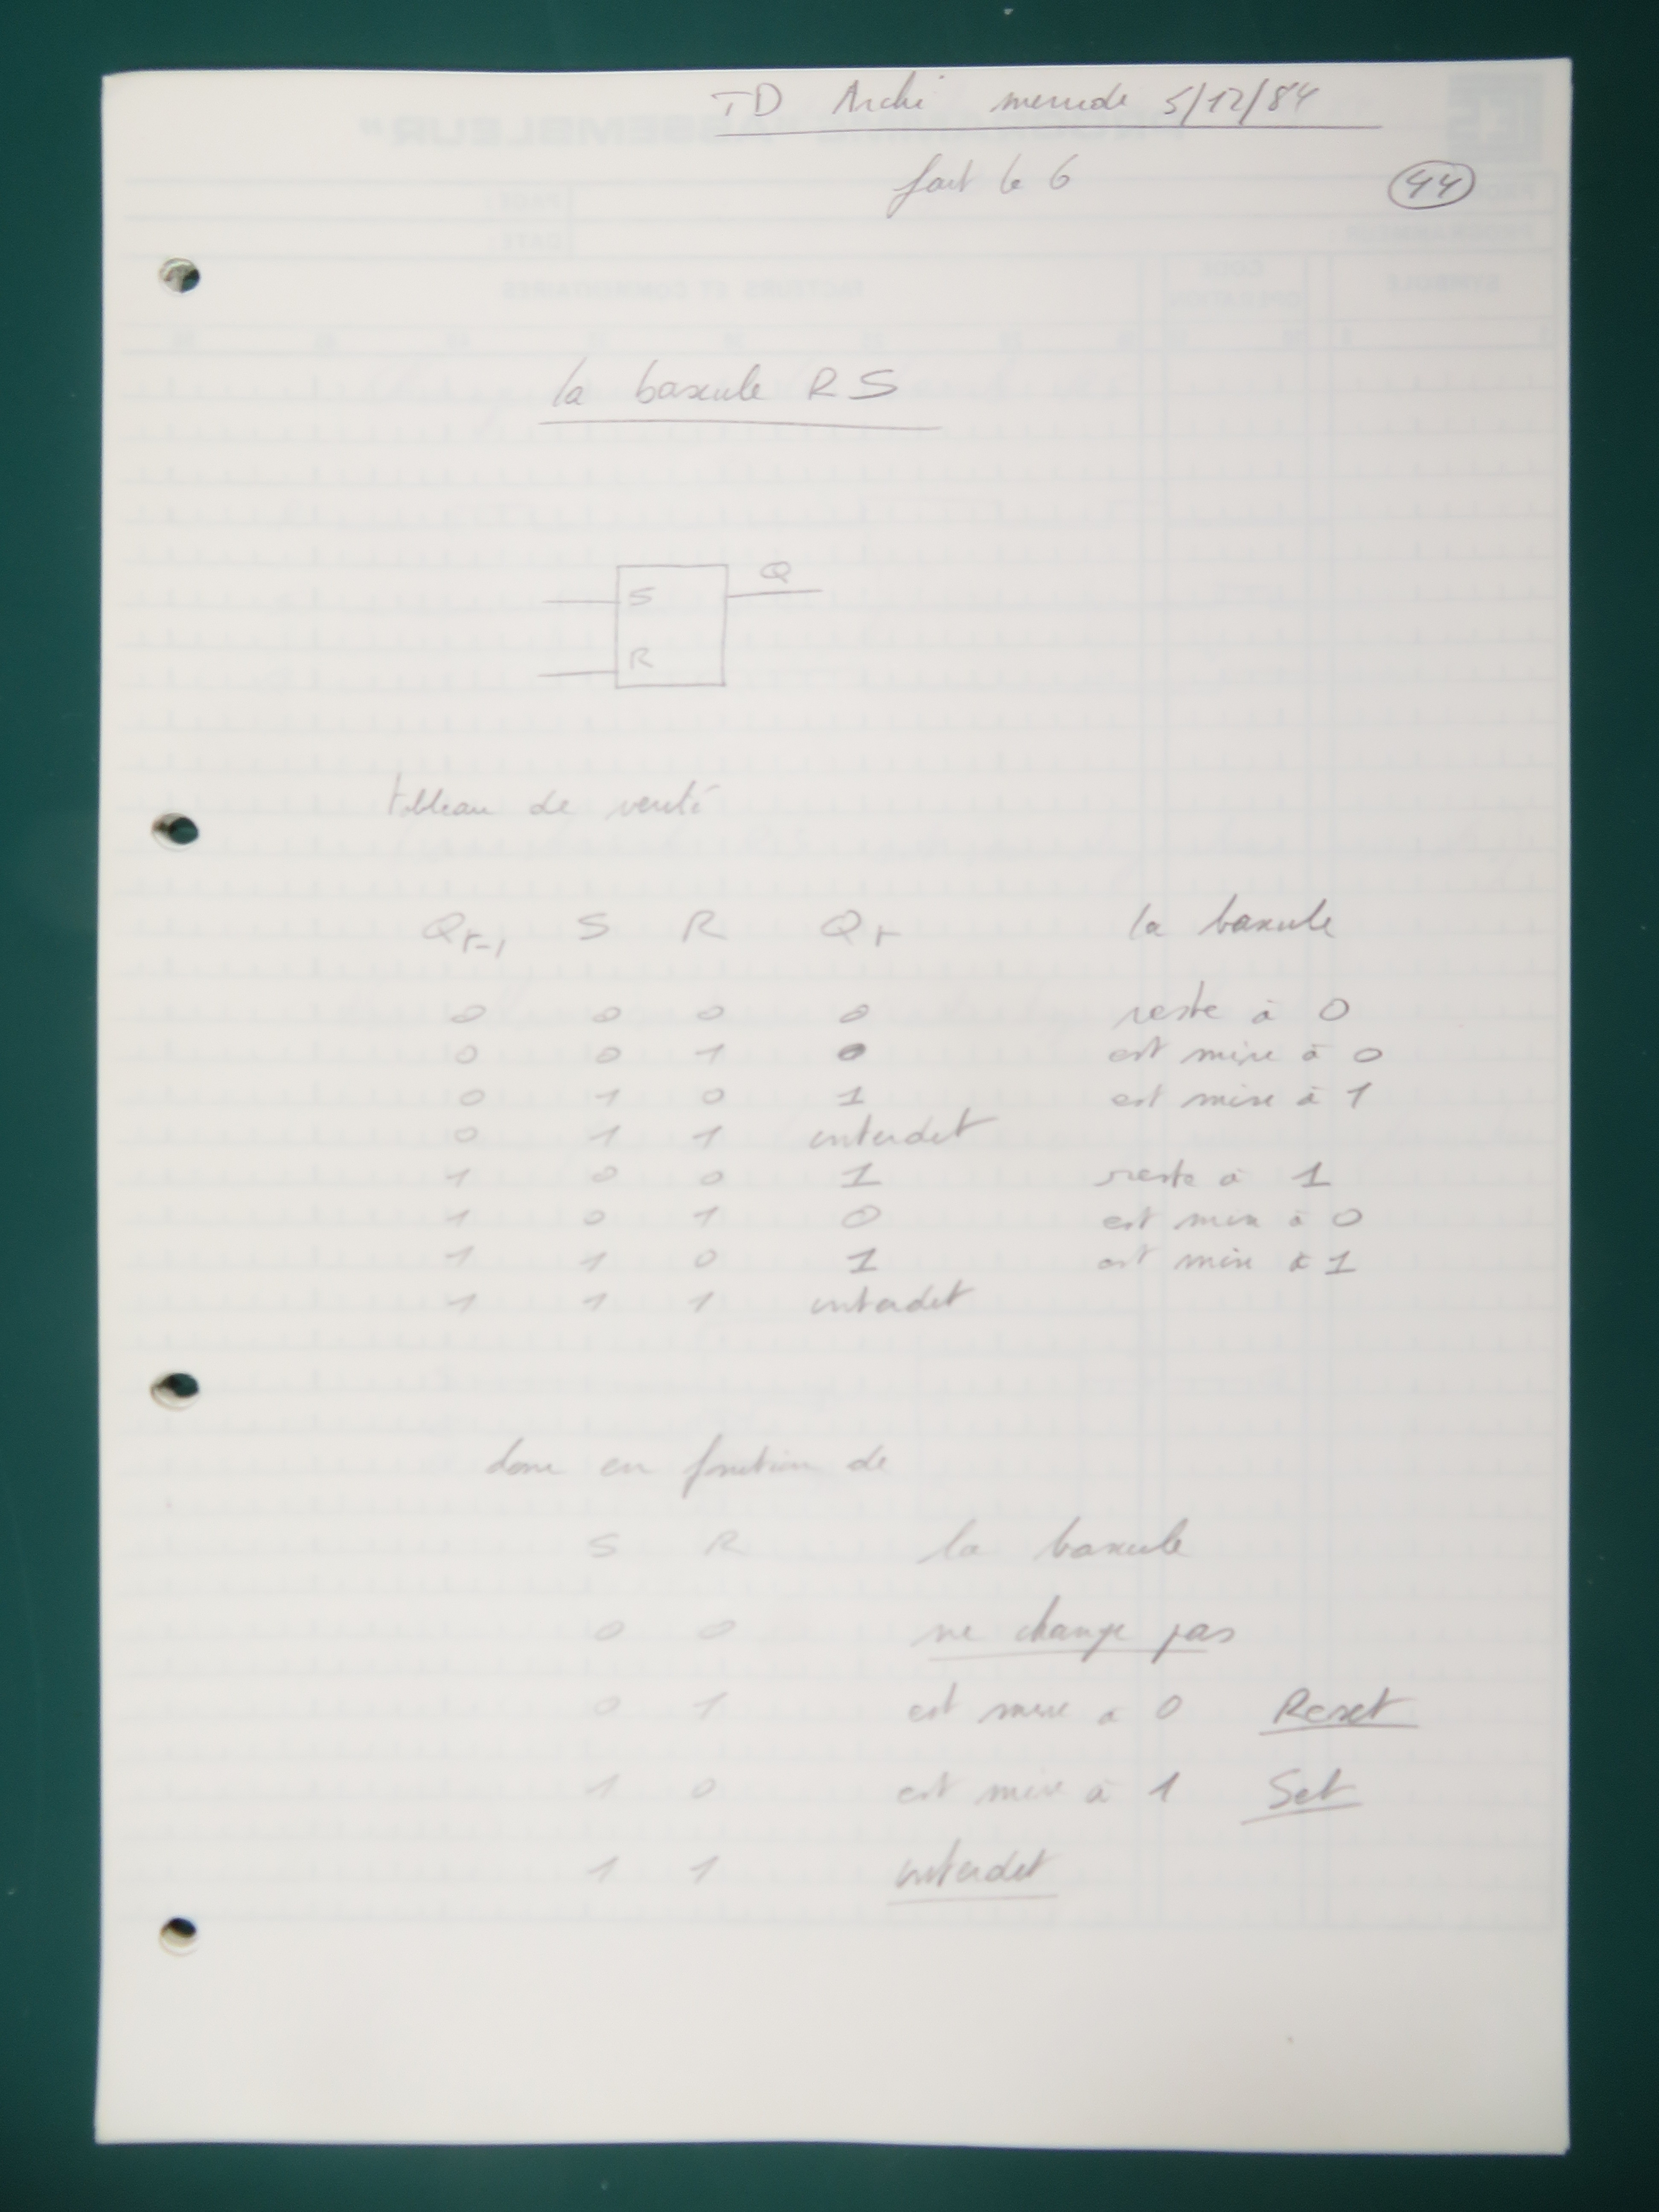 TD Archi mercredi 5/12/84
fait le 6
44
la bascule RS
S
Q
R
tableau de vérité
Qt-1 S R Qt la bascule
0 0 0 0 reste à 0
0 0 1 0 est mise à 0
0 1 0 1 est mise à 1
0 1 1 interdit
1 0 0 1 reste à 1
1 0 1 0 est mise à 0
1 1 0 1 est mise à 1
1 1 1 interdit
donc en fonction de
S R la bascule
0 0 ne change pas
0 1 est mise à 0 Reset
1 0 est mise à 1 Set
1 1 interdit